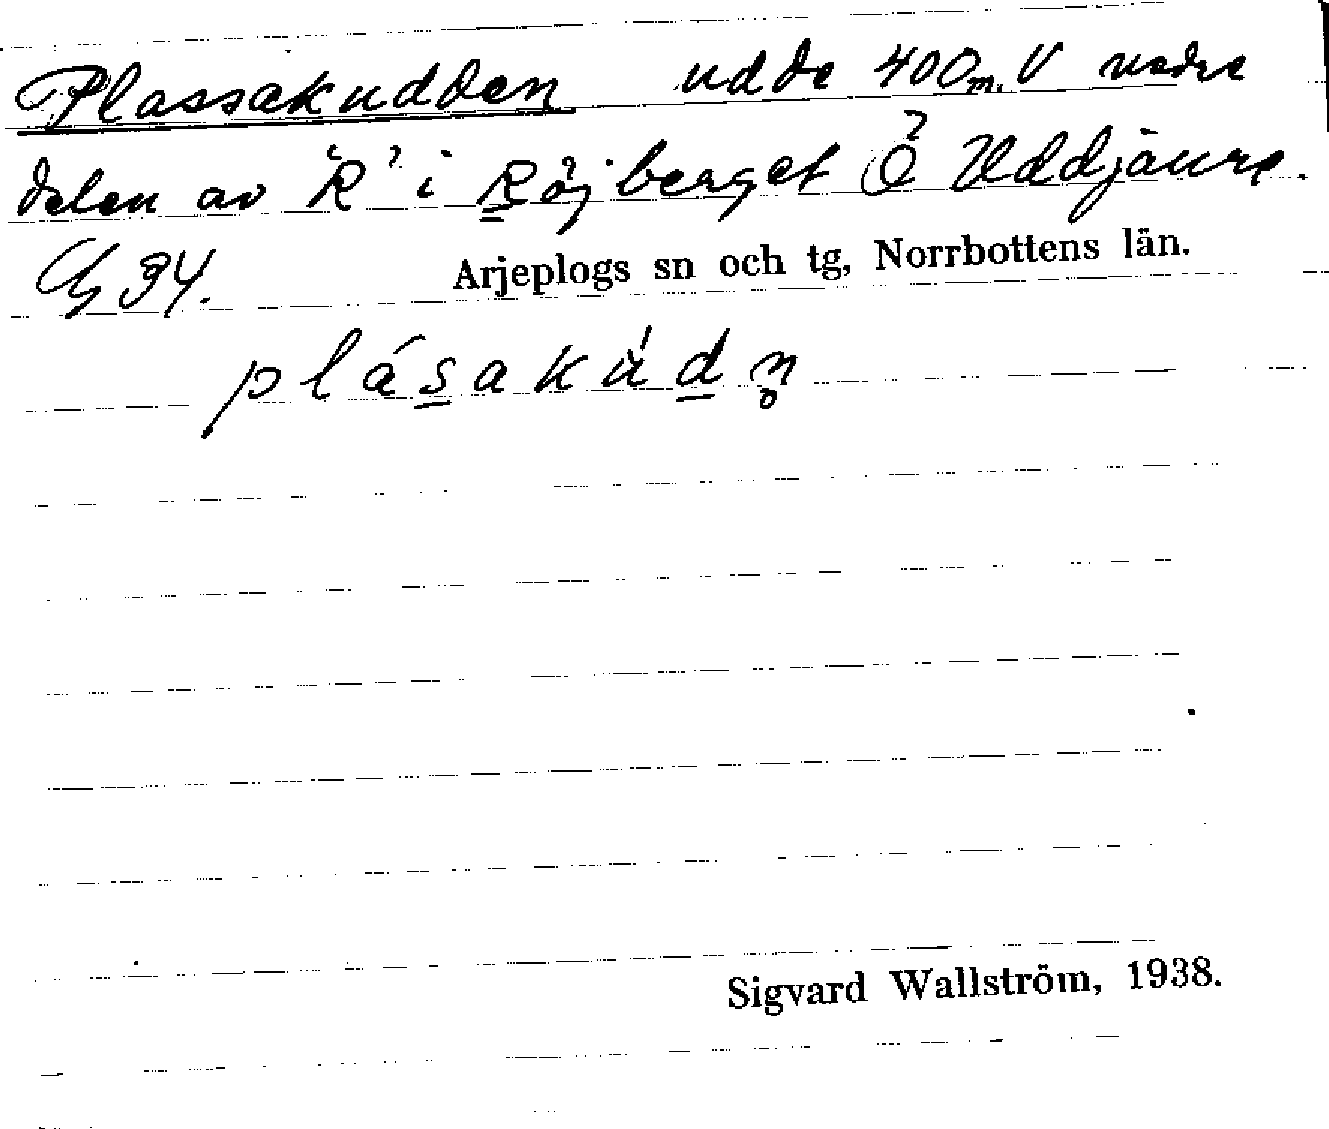 Plassakudden udde 400 m. V nedre
delen av 'R' i Röjberget Ö Uddjaure.
G 34. Arjeplogs sn och tg, Norrbottens län.
plásakùdn̥
Sigvard Wallström, 1938.